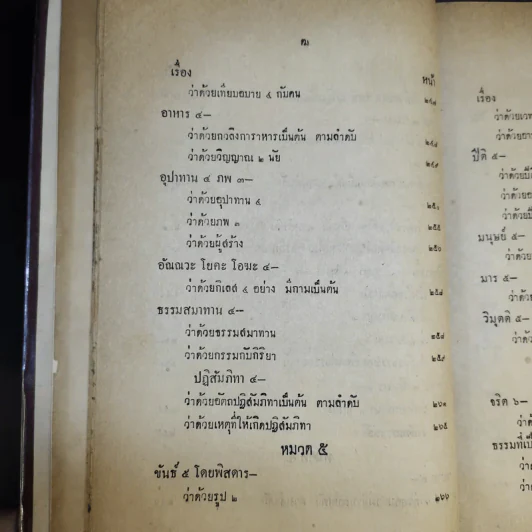 ฒ
เรื่อง
หน้า
ว่าด้วยเทียบอบาย ๔ กับคน
อาหาร ๔—
ว่าด้วยกวฬิงการาหารเป็นต้น ตามลำดับ
ว่าด้วยวิญญาณ ๒ นัย
อุปาทาน ๔ ภพ ๓—
ว่าด้วยอุปาทาน ๔
ว่าด้วยภพ ๓
ว่าด้วยผู้สร้าง
อัณณวะ โยคะ โอฆะ ๔—
ว่าด้วยกิเลส ๔ อย่าง มีกามเป็นต้น ๒๕๘
ธรรมสมาทาน ๔—
ว่าด้วยธรรมสมาทาน
ว่าด้วยกรรมกับกิริยา ๒๕๙
ปฏิสัมภิทา ๔—
ว่าด้วยอัตถปฏิสัมภิทาเป็นต้น ตามลำดับ ๒๖๑
ว่าด้วยเหตุที่ให้เกิดปฏิสัมภิทา ๒๖๕
หมวด ๕
ขันธ์ ๕ โดยพิสดาร—
ว่าด้วยรูป ๒ ๒๖๖
เรื่อง
ปีติ ๕—
มนุษย์ ๕—
มาร ๕—
วิมุตติ ๕—
จริต ๖—